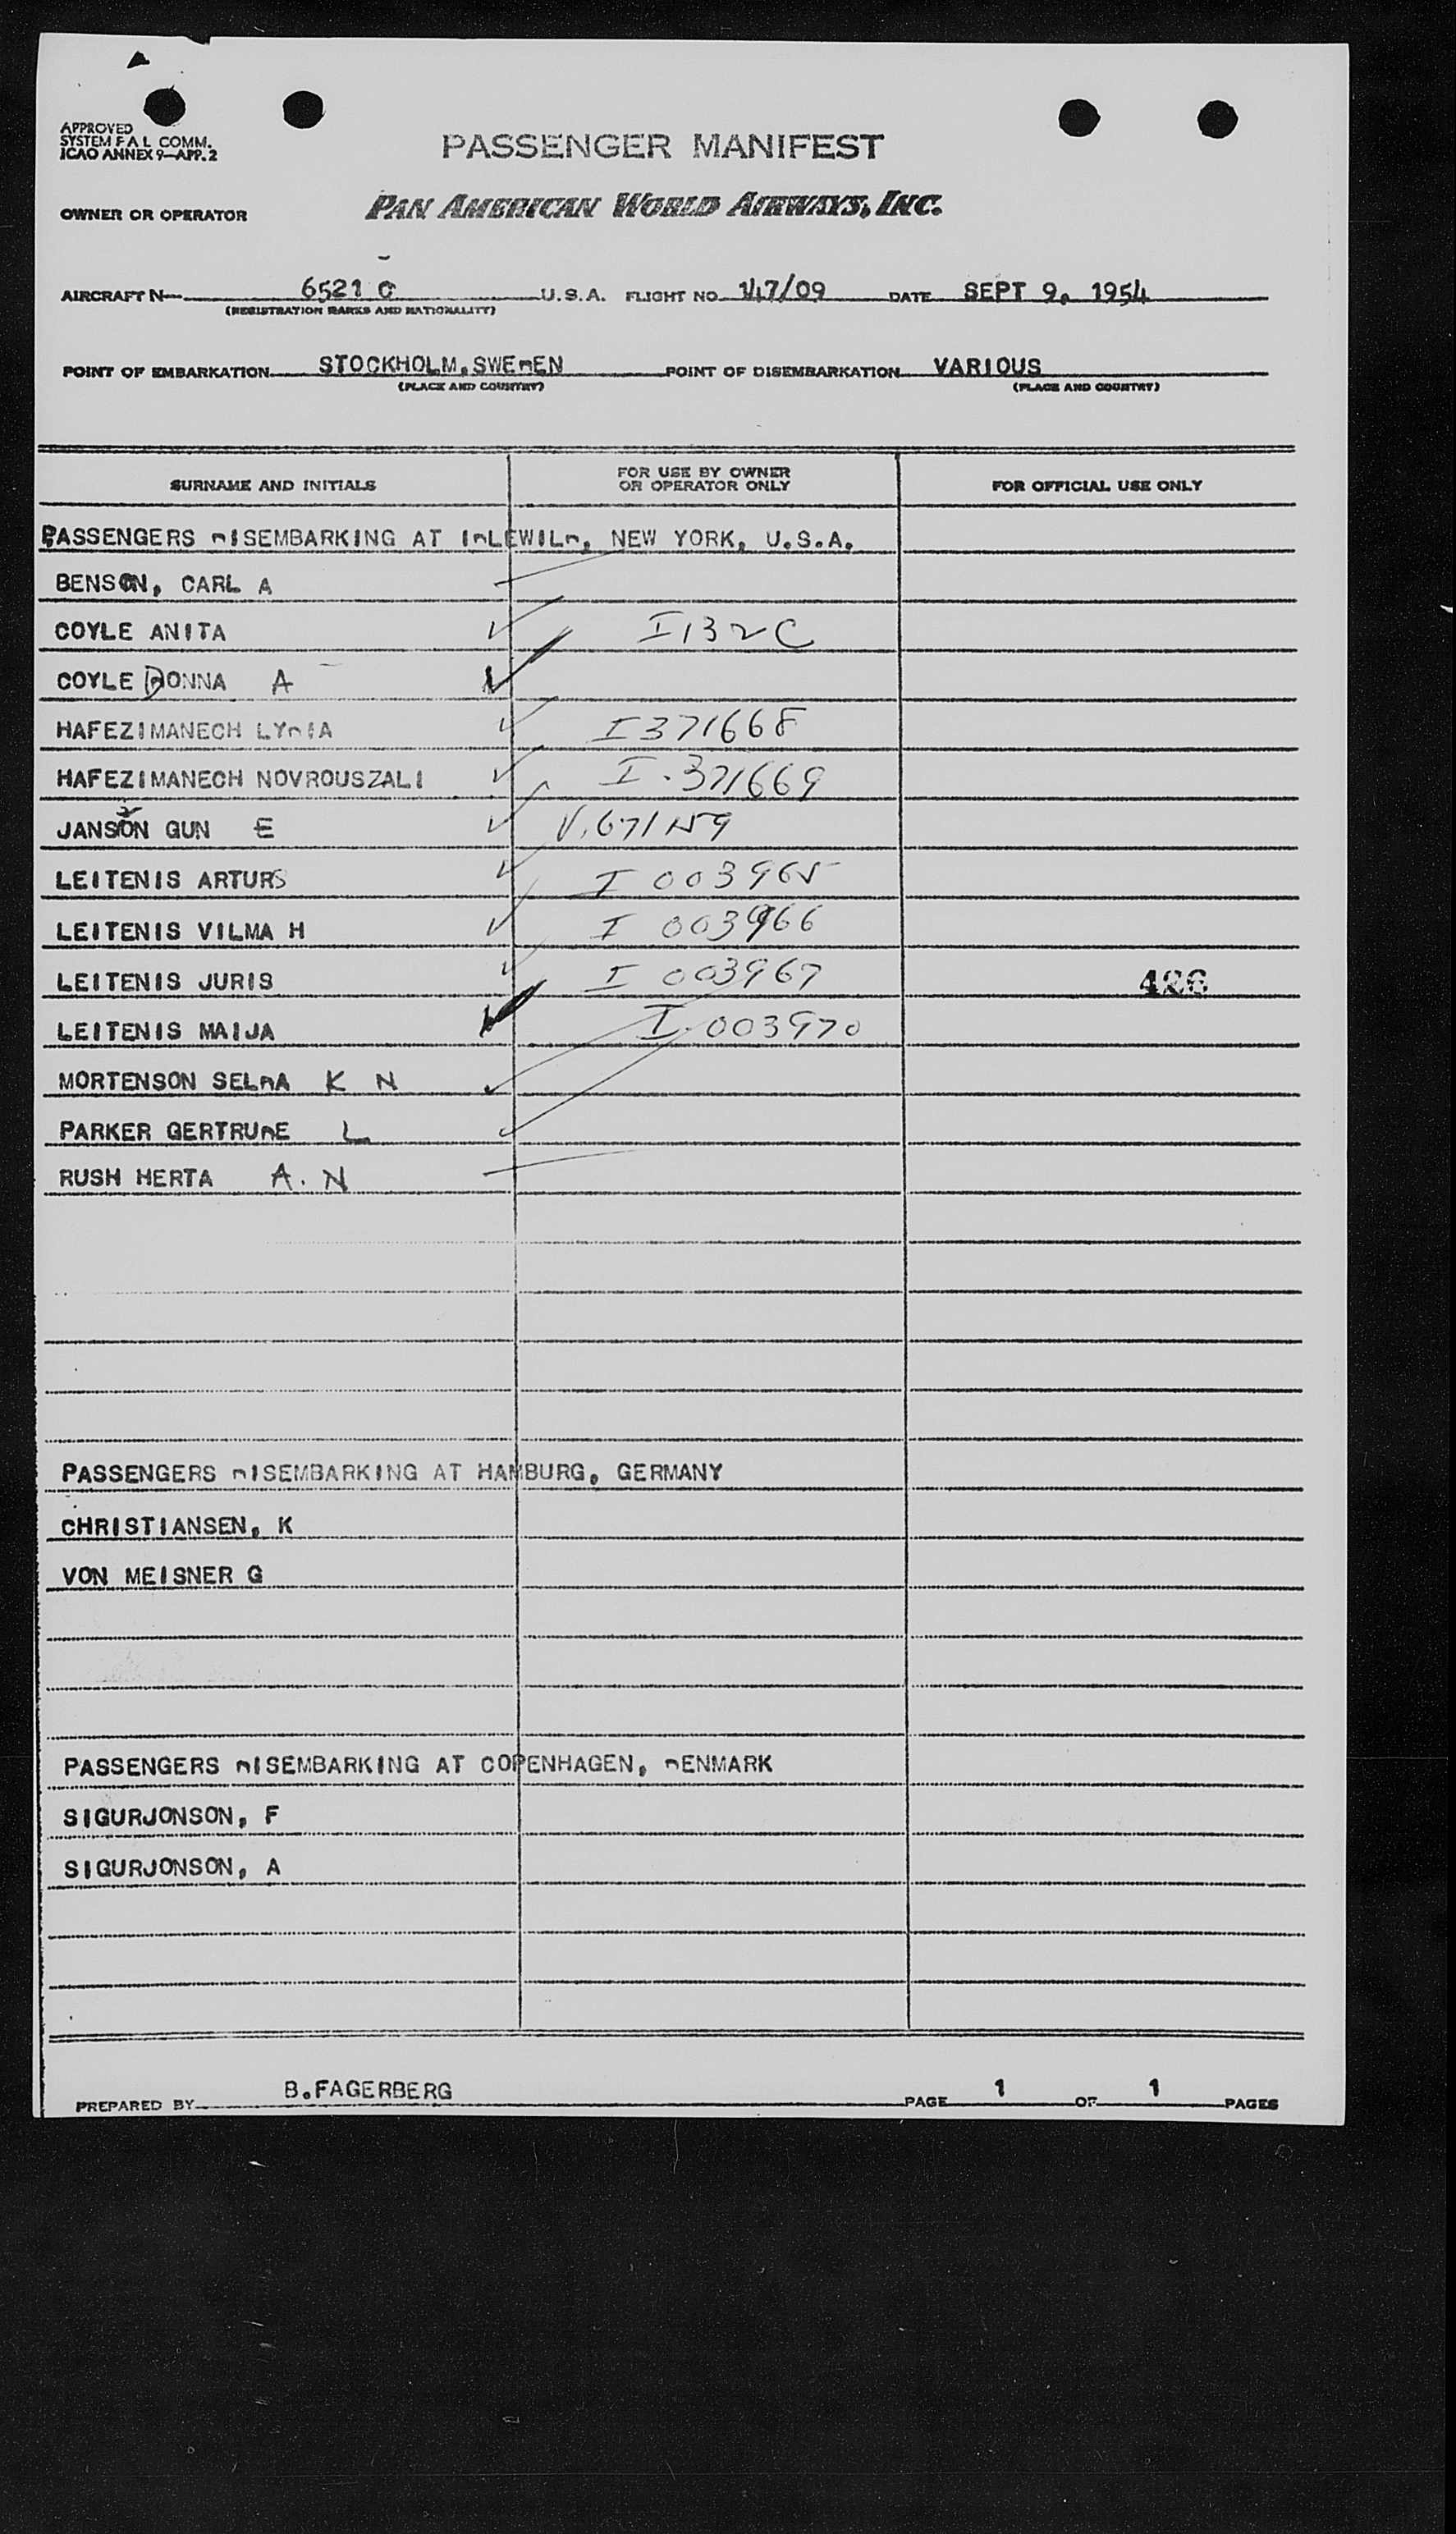 APPROVED
SYSTEM F A L COMM.
ICAO ANNEX 9—APP. 2
PASSENGER MANIFEST
OWNER OR OPERATOR PAN AMERICAN WORLD AIRWAYS, INC.
AIRCRAFT N— 6521 C U.S.A. FLIGHT NO. 147/09 DATE SEPT 9, 1954
(REGISTRATION MARKS AND NATIONALITY)
POINT OF EMBARKATION STOCKHOLM, SWEDEN POINT OF DISEMBARKATION VARIOUS
(PLACE AND COUNTRY) (PLACE AND COUNTRY)
SURNAME AND INITIALS FOR USE BY OWNER OR OPERATOR ONLY FOR OFFICIAL USE ONLY
PASSENGERS DISEMBARKING AT IDLEWILD, NEW YORK, U.S.A.
BENSON, CARL A
COYLE ANITA I 132 C
COYLE DONNA A
HAFEZIMANECH LYDIA I 371668
HAFEZIMANECH NOVROUSZALI I-371669
JANSON GUN E
LEITENIS ARTURS I 003965
LEITENIS VILMA H I 003966
LEITENIS JURIS I 003967 426
LEITENIS MAIJA I-003970
MORTENSON SELDA K N
PARKER GERTRUDE L
RUSH HERTA A. N
PASSENGERS DISEMBARKING AT HAMBURG, GERMANY
CHRISTIANSEN, K
VON MEISNER G
PASSENGERS DISEMBARKING AT COPENHAGEN, DENMARK
SIGURJONSON, F
SIGURJONSON, A
PREPARED BY B.FAGERBERG PAGE 1 OF 1 PAGES